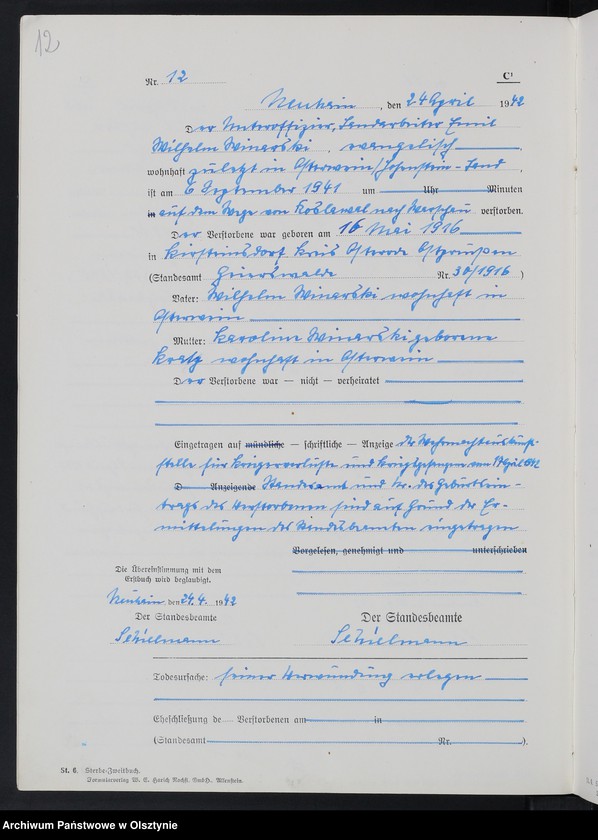 12
Nr. 12 C¹
den 24 April 1942
Der Unteroffizier, Landarbeiter Emil
Wilhelm Winarski, evangelisch
wohnhaft zuletzt in Osterwein/Hohenstein-Land,
ist am 6 September 1941 um Uhr Minuten
in auf dem Wege von nach Warschau verstorben.
Der Verstorbene war geboren am 16 Mai 1916
in Kirsteinsdorf Kreis Osterode Ostpreußen
(Standesamt Geierswalde Nr. 30/1916)
Vater: Wilhelm Winarski wohnhaft in
Osterwein
Mutter: Karoline Winarski geborene
Kratz wohnhaft in Osterwein
Der Verstorbene war — nicht — verheiratet
Eingetragen auf mündliche — schriftliche — Anzeige der Wehrmachtauskunft-
stelle für Kriegerverluste und Kriegsgefangene vom April 1942
D Anzeigende Standesamt und Nr. des Geburtsein-
trags des Verstorbenen sind auf Grund der Er-
mittelungen des Standesbeamten eingetragen
Vorgelesen, genehmigt und unterschrieben
Die Übereinstimmung mit dem
Erstbuch wird beglaubigt.
den 24.4. 1942
Der Standesbeamte
Der Standesbeamte
Todesursache: seiner Verwundung erlegen
Eheschließung de Verstorbenen am in
(Standesamt Nr. ).
St. 6. Sterbe-Zweitbuch.
Formularverlag W. E. Harich Nachfl. GmbH., Allenstein.
Archiwum Państwowe w Olsztynie